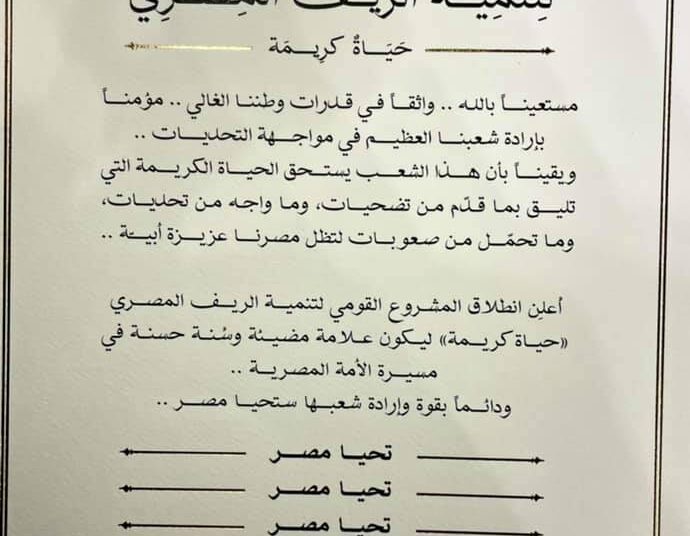 لِتَنمِيَة الريف المِصْرِي
حَيَاةٌ كَرِيمَة
مستعينـاً بالله .. واثقـاً في قـدرات وطننـا الغالي .. مؤمنـاً
بإرادة شعبنـا العظيـم في مواجـهة التحديـات ..
ويقينـاً بأن هـذا الشعب يستحـق الحيـاة الكريمـة التي
تليـق بما قـدّم من تضحيـات، ومـا واجه مـن تحديـات،
ومـا تحمّـل مـن صعوبـات لتظل مصـرنـا عزيـزة أبيـة ..
أعلـن انطـلاق المشـروع القومي لتنميـة الريـف المصـري
«حيـاة كريمـة» ليكون عـلامة مضيئـة وسُنـة حسنـة في
مسيـرة الأمة المصـريـة ..
ودائمـاً بقوة وإرادة شعبهـا ستحيـا مصـر ..
تحيـا مصـر
تحيـا مصـر
تحيـا مصـر